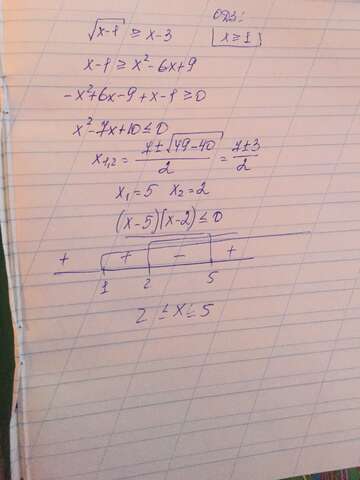 ОДЗ:
√x-1 ≥ x-3 x ≥ 1
x-1 ≥ x²-6x+9
-x²+6x-9+x-1 ≥ 0
x²-7x+10 ≤ 0
x₁,₂ = (7±√49-40)/2 = (7±3)/2
x₁=5 x₂=2
(x-5)(x-2) ≤ 0
+ + - +
1 2 5
2 ≤ x ≤ 5